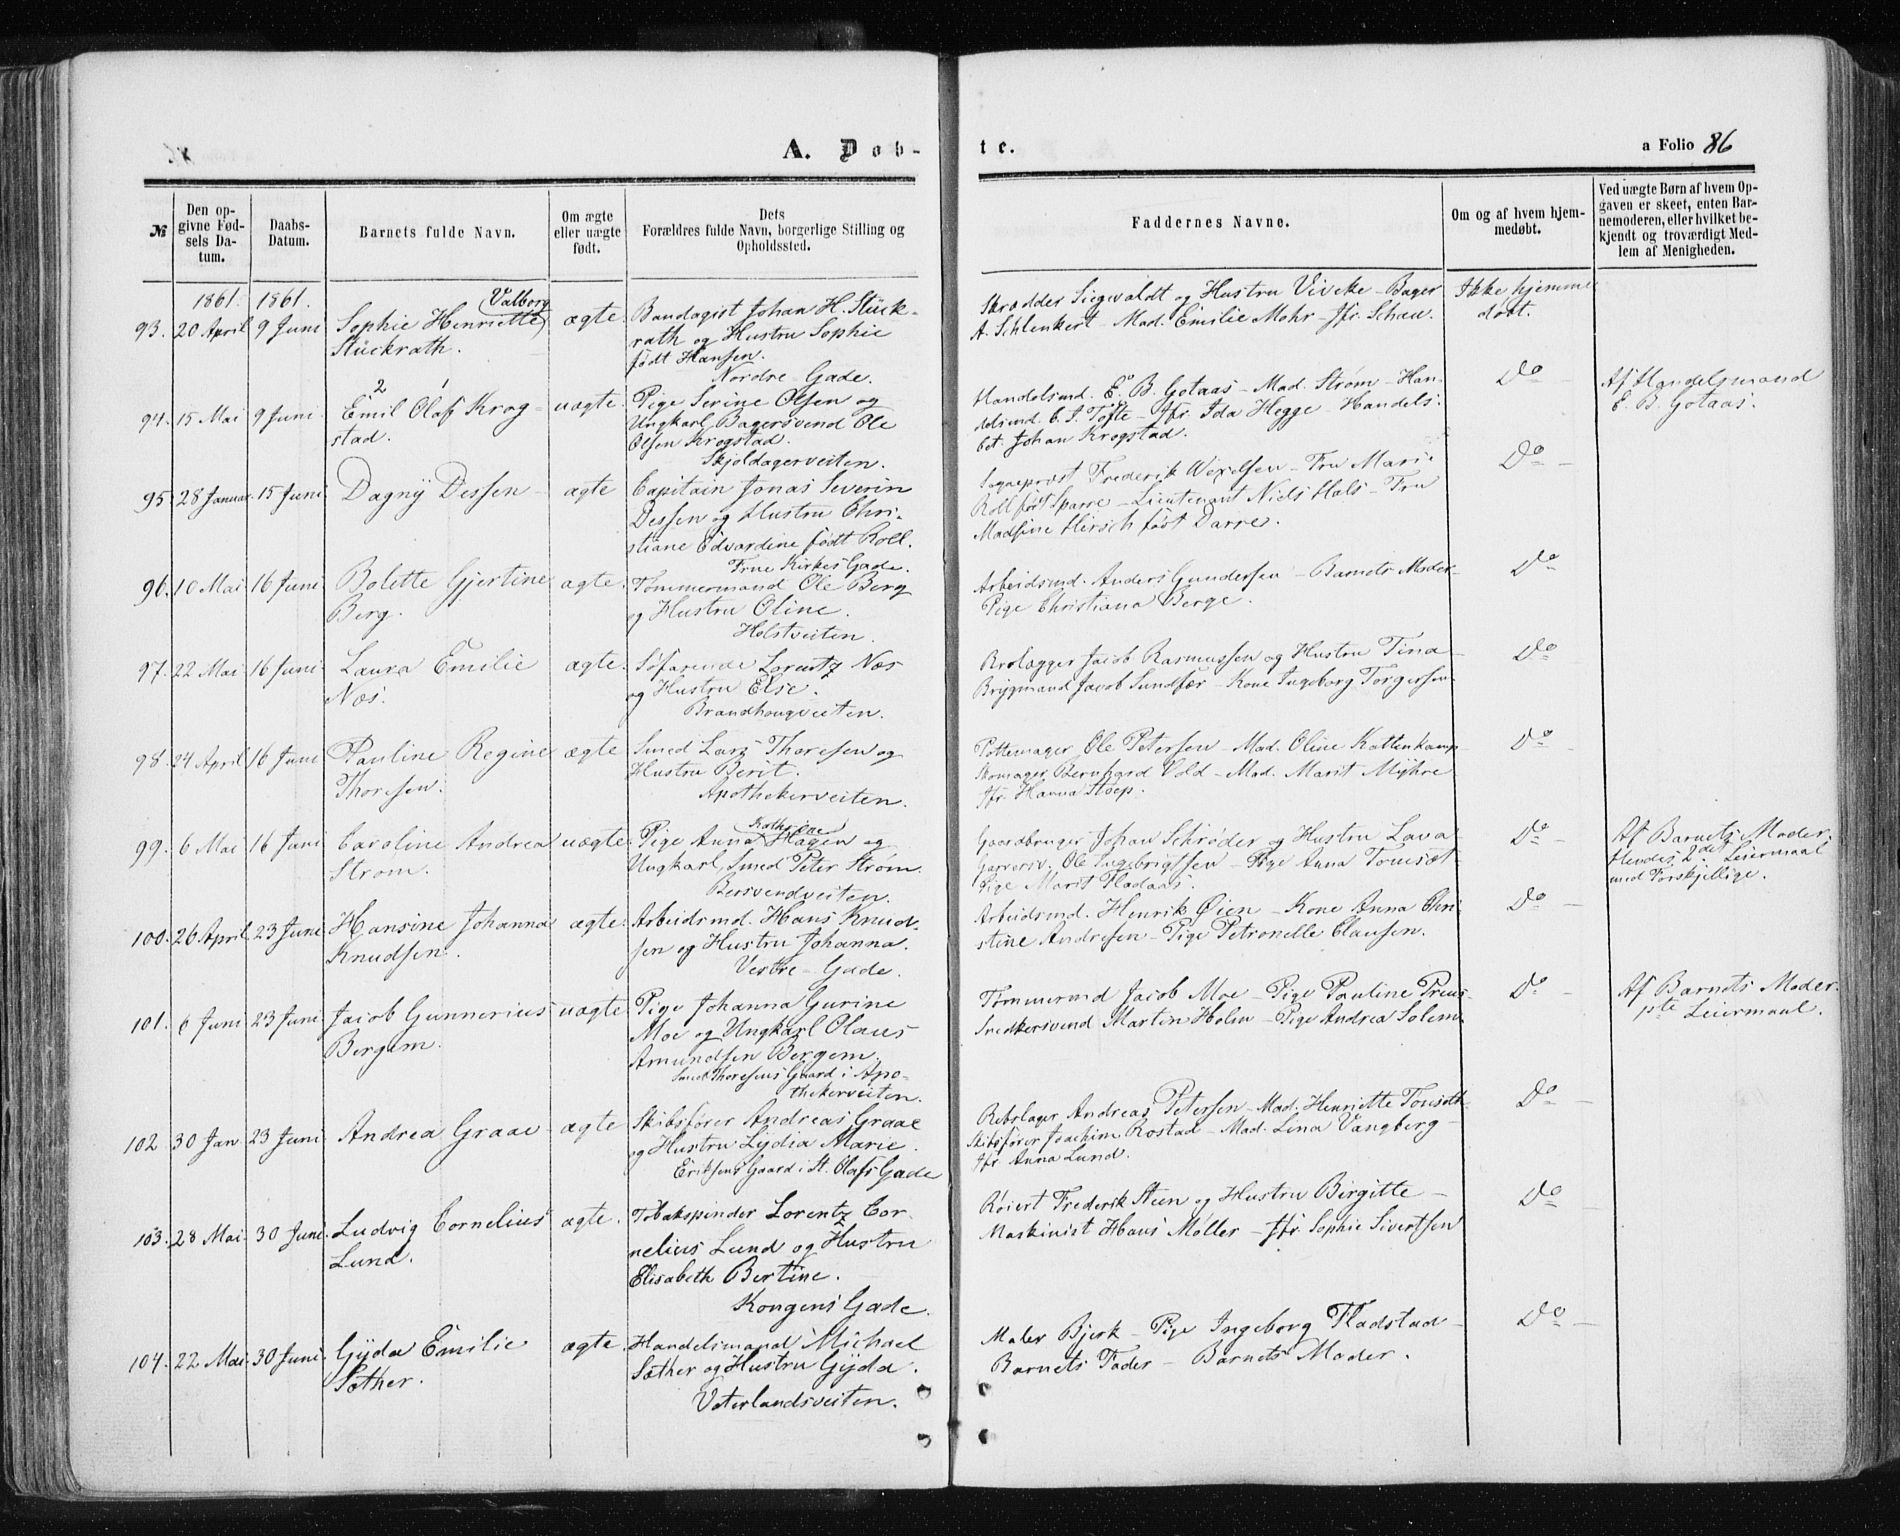 A. Døb-
te.
a Folio 86
№
Den op-
givne Fød-
sels Da-
tum.
Daabs-
Datum.
Barnets fulde Navn.
Om ægte
eller uægte
født.
Dets
Forældres fulde Navn, borgerlige Stilling og
Opholdssted.
Faddernes Navne.
Om og af hvem hjem-
medøbt.
Ved uægte Børn af hvem Op-
gaven er skeet, enten Bar-
nemoderen, eller hvilket be-
kjendt og troværdigt Med-
lem af Menigheden.
1861. 1861.
93. 20 April 9 Juni
Valborg
Sophie Henriette
Stückrath.
ægte.
Bandagist Johan H. Stück-
rath og Hustru Sophie
født Hansen.
Nordre Gade.
Skrædder Siegwaldt og Hustru Viveke - Bager
A. Schlenkert - Mad. Emilie Mohr - Jfr. Schau.
Ikke hjemme
døbt.
94. 15 Mai 9 Juni
2
Emil Olaf Krog-
stad.
uægte.
Pige Serine Olsen og
Ungkarl, Bagersvend Ole
Olsen Krogstad.
Skjoldagerveiten.
Handelsmd. E. B. Gotaas - Mad. Strøm - Han-
delsmd. C. J. Tofte - Jfr. Ida Hegge - Handels-
bet. Johan Krogstad.
Do
Af Handelsmand
E. B. Gotaas.
95. 28 Januar 15 Juni
Dagny Dessen
ægte
Capitain Jonas Severin
Dessen og Hustru Chri-
stiane Edvardine født Roll.
Frue Kirkes Gade.
Sogneprest Frederik Wexelsen - Fru Marie
Roll født Sparre - Lieutenant Niels Hals - Fru
Madsine Hirsch født Darre.
Do
96. 10 Mai 16 Juni
Bolette Gjertine
Berg.
ægte.
Tømmermand Ole Berg
og Hustru Oline.
Holstveiten.
Arbeidsmd. Anders Gundersen - Barnets Moder-
Pige Christiana Berge.
Do
97. 22 Mai 16 Juni
Laura Emilie
Næs.
ægte.
Søfarende Lorentz Næs
og Hustru Else.
Brandhougveiten.
Brolægger Jacob Rasmussen og Hustru Tina
Brygmand Jacob Sundfær - Kone Ingeborg Torgersen
Do
98. 24 April 16 Juni
Pauline Regine
Thoresen.
ægte
Smed Lars Thoresen og
Hustru Berit.
Apothekerveiten.
Pottemager Ole Petersen - Mad. Oline Kattenkamp
Skomager Bernhard Vold - Mad. Marit Myhre
Jfr. Hanna Støep.
Do
99. 6 Mai 16 Juni
Caroline Andrea
Strøm.
uægte.
Kathrine
Pige Anna Hagen og
Ungkarl, Smed Peter Strøm.
Bersvendveiten.
Gaardbruger Johan Schrøder og Hustru Lava
Garversv. Ole Ingebrigtsen - Pige Anna Tomsæt
Pige Marit Fladaas.
Do
Af Barnets Moder.
Hendes 2det Leiermaal
med Forskjellige.
100. 26 April 23 Juni
Hansine Johanna
Knudsen.
ægte.
Arbeidsmd. Hans Knud-
sen og Hustru Johanna.
Vestre - Gade.
Arbeidsmd. Henrik Øien - Kone Anna Chri-
stine Andresen - Pige Petronelle Clausen.
Do
101. 6 Juni 23 Juni
Jacob Gunnerius
Bergem.
uægte.
Pige Johanna Gurine
Moe og Ungkarl Olaus
Amundsen Bergem.
Smed Thoresens Gaard i Apo-
thekerveiten.
Tømmermd Jacob Moe - Pige Pauline Preus-
Snedkersvend Martin Holm - Pige Andrea Solem.
Do
Af Barnets Moder.
1ste Leiermaal.
102 30 Jan 23 Juni
Andrea Graae
ægte
Skibsfører Andreas Graae
og Hustru Lydia Marie.
Eriksens Gaard i St. Olafs Gade
Rebslager Andreas Petersen - Mad. Henriette Tomseth
Skibsfører Joachim Rostad - Mad. Lina Vangberg -
Jfr. Anna Lund.
Do
103. 28 Mai 30 Juni
Ludvig Cornelius
Lund.
ægte.
Tobakspinder Lorentz Cor-
nelius Lund og Hustru
Elisabeth Bertine.
Kongens Gade.
Røiert Frederik Steen og Hustru Birgitte -
Maskinist Hans Møller - Jfr. Sophie Sivertsen
Do
104. 22 Mai 30 Juni
Gyda Emilie
Sæther.
ægte.
Handelsmand Michael
Sæther og Hustru Gyda.
Vaterlandsveiten.
Maler Bjerk - Pige Ingeborg Fladstad -
Barnets Fader - Barnets Moder.
Do